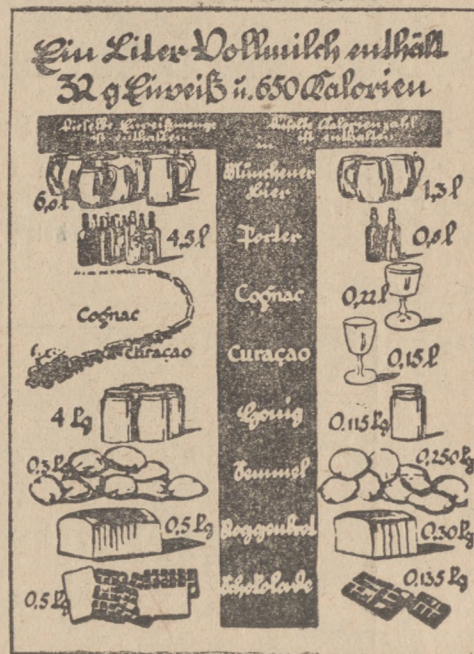 Ein Liter Vollmilch enthält
32 g Eiweiß u. 650 Calorien
Dieselbe Eiweißmenge
ist enthalten
Dieselbe Calorienzahl
ist enthalten
in
6,0 l
Münchener
Bier
1,3 l
4,5 l
Porter
0,6 l
Cognac
Cognac
0,22 l
Curaçao
Curaçao
0,15 l
4 kg
Honig
0,115 kg
0,3 kg
Semmel
0,250 kg
0,5 kg
Roggenbrot
0,30 kg
0,5 kg
Schokolade
0,135 kg